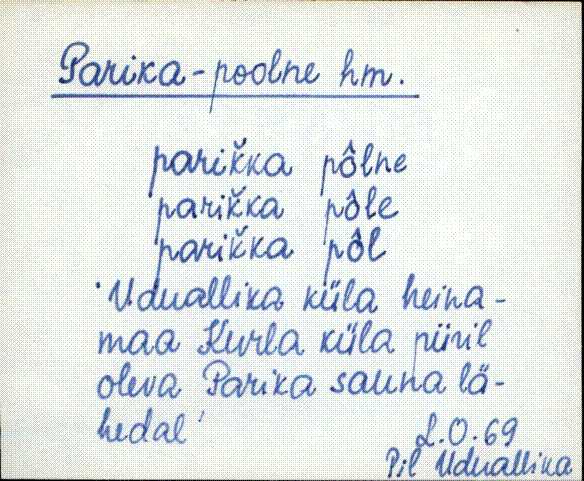 Parika-poolne hm.
parik̆ka pôlne
parik̆ka pôle
parik̆ka pôl
'Uduallika küla heina-
maa Kurla küla piiril
oleva Parika sauna lä-
hedal'
L.O. 69
Pil Uduallika